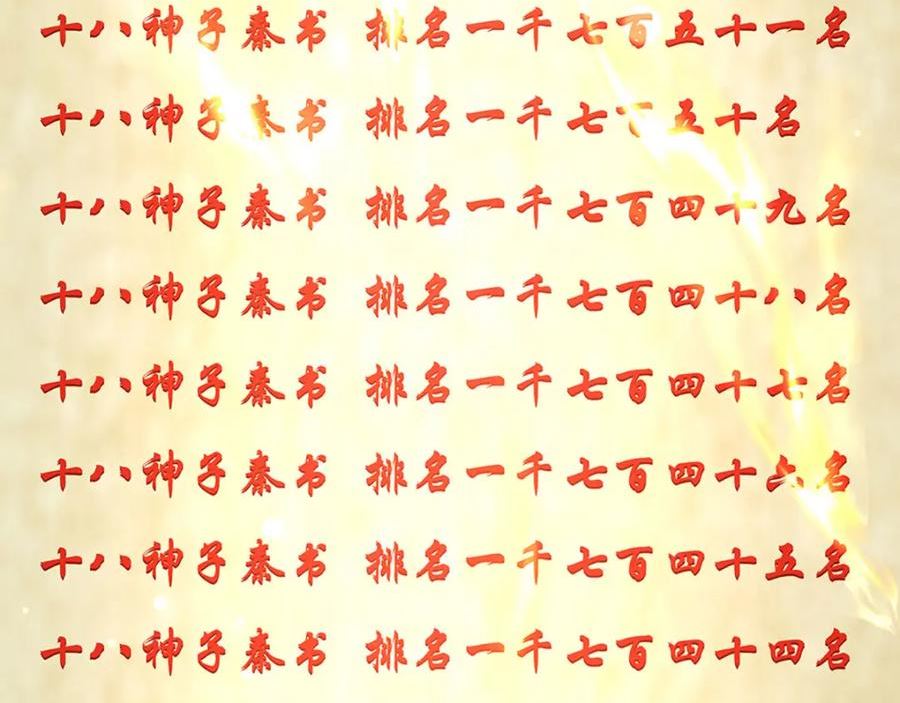 十八神子秦书 排名一千七百五十一名
十八神子秦书 排名一千七百五十名
十八神子秦书 排名一千七百四十九名
十八神子秦书 排名一千七百四十八名
十八神子秦书 排名一千七百四十七名
十八神子秦书 排名一千七百四十六名
十八神子秦书 排名一千七百四十五名
十八神子秦书 排名一千七百四十四名